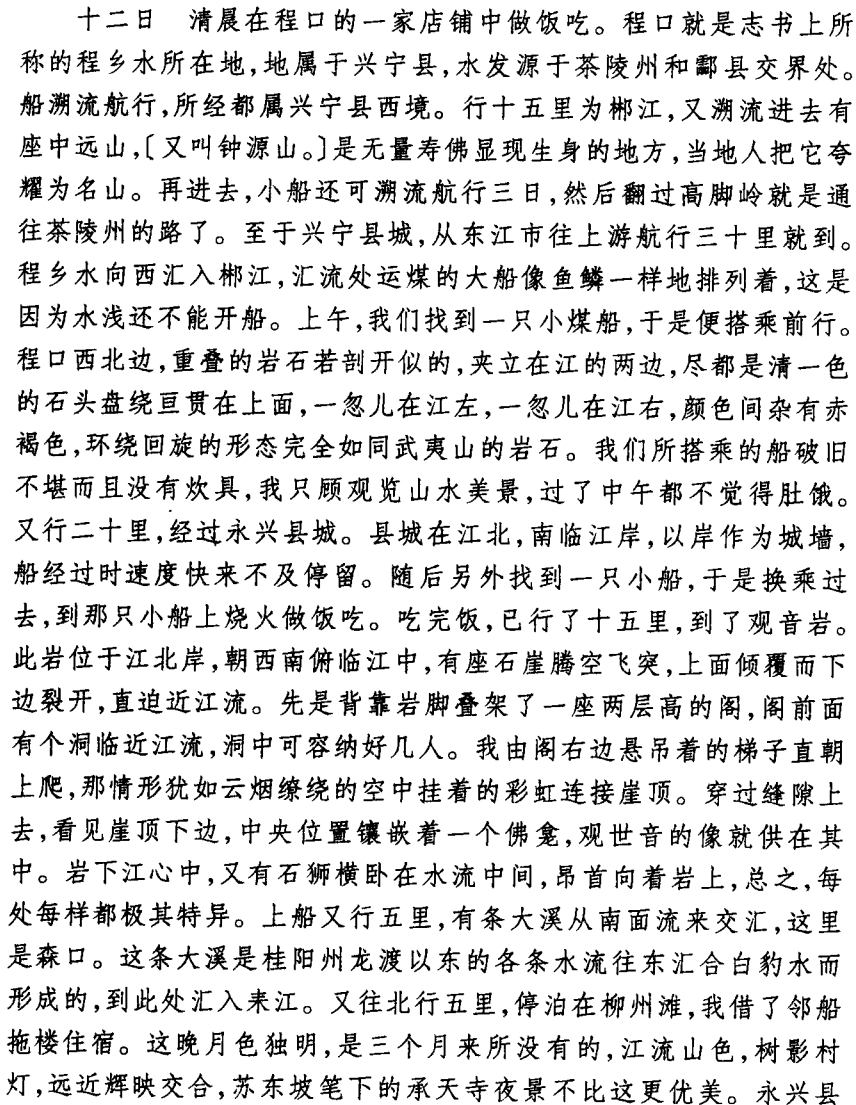 十二日　清晨在程口的一家店铺中做饭吃。程口就是志书上所
称的程乡水所在地,地属于兴宁县,水发源于茶陵州和酃县交界处。
船溯流航行,所经都属兴宁县西境。行十五里为郴江,又溯流进去有
座中远山,〔又叫钟源山。〕是无量寿佛显现生身的地方,当地人把它夸
耀为名山。再进去,小船还可溯流航行三日,然后翻过高脚岭就是通
往茶陵州的路了。至于兴宁县城,从东江市往上游航行三十里就到。
程乡水向西汇入郴江,汇流处运煤的大船像鱼鳞一样地排列着,这是
因为水浅还不能开船。上午,我们找到一只小煤船,于是便搭乘前行。
程口西北边,重叠的岩石若剖开似的,夹立在江的两边,尽都是清一色
的石头盘绕亘贯在上面,一忽儿在江左,一忽儿在江右,颜色间杂有赤
褐色,环绕回旋的形态完全如同武夷山的岩石。我们所搭乘的船破旧
不堪而且没有炊具,我只顾观览山水美景,过了中午都不觉得肚饿。
又行二十里,经过永兴县城。县城在江北,南临江岸,以岸作为城墙,
船经过时速度快来不及停留。随后另外找到一只小船,于是换乘过
去,到那只小船上烧火做饭吃。吃完饭,已行了十五里,到了观音岩。
此岩位于江北岸,朝西南俯临江中,有座石崖腾空飞突,上面倾覆而下
边裂开,直迫近江流。先是背靠岩脚叠架了一座两层高的阁,阁前面
有个洞临近江流,洞中可容纳好几人。我由阁右边悬吊着的梯子直朝
上爬,那情形犹如云烟缭绕的空中挂着的彩虹连接崖顶。穿过缝隙上
去,看见崖顶下边,中央位置镶嵌着一个佛龛,观世音的像就供在其
中。岩下江心中,又有石狮横卧在水流中间,昂首向着岩上,总之,每
处每样都极其特异。上船又行五里,有条大溪从南面流来交汇,这里
是森口。这条大溪是桂阳州龙渡以东的各条水流往东汇合白豹水而
形成的,到此处汇入耒江。又往北行五里,停泊在柳州滩,我借了邻船
拖楼住宿。这晚月色独明,是三个月来所没有的,江流山色,树影村
灯,远近辉映交合,苏东坡笔下的承天寺夜景不比这更优美。永兴县